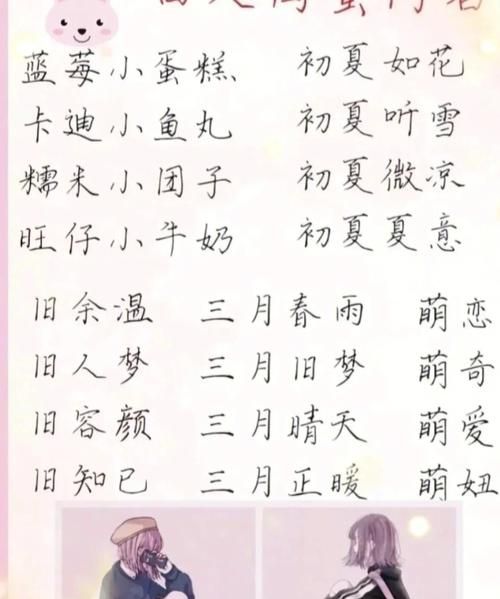 蓝莓小蛋糕 初夏如花
卡迪小鱼丸 初夏听雪
糯米小团子 初夏微凉
旺仔小牛奶 初夏夏意
旧余温 三月春雨 萌恋
旧人梦 三月旧梦 萌奇
旧容颜 三月晴天 萌爱
旧知已 三月正暖 萌妞